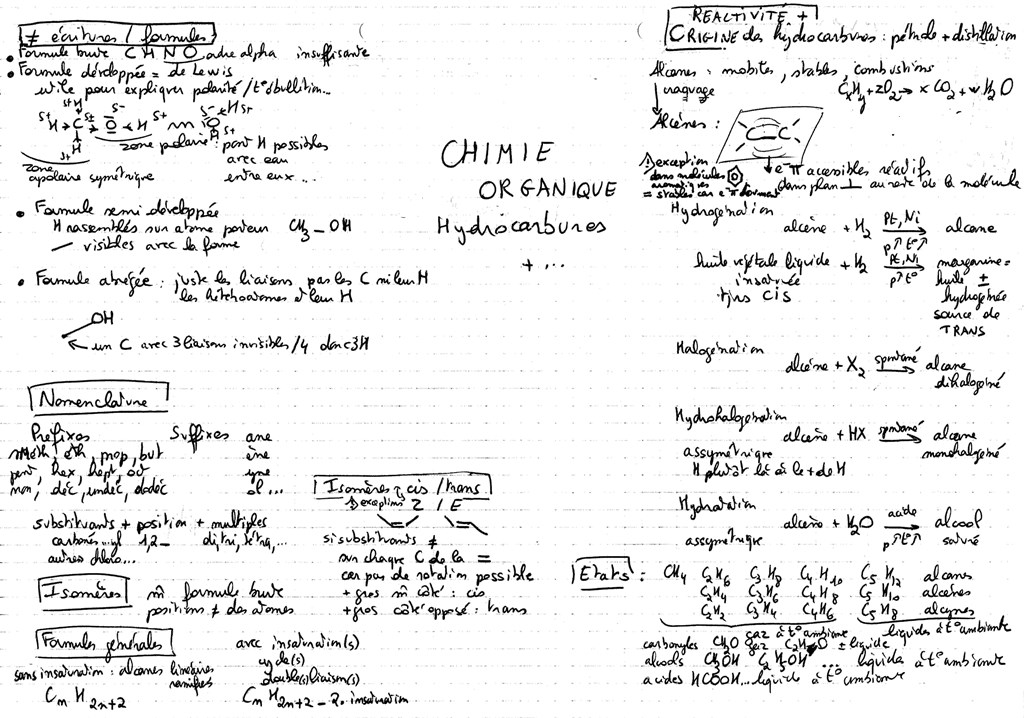 ≠ écritures / formules
• Formule brute C H N O ordre alpha insuffisante
• Formule développée = de Lewis
utile pour expliquer polarité / t° ébullition...
zone polaire : pont H possibles
avec eau
entre eux...
zone
apolaire symétrique
• Formule semi développée
H rassemblés sur atome porteur CH3 – OH
– visibles avec la forme
• Formule abrégée : juste les liaisons pas les C ni leur H
les hétéroatomes et leur H
OH
← un C avec 3 liaisons invisibles /4 donc 3H
Nomenclature
Préfixes Suffixes ane
méth, éth, prop, but ène
pent, hex, hept, oct yne
non, déc, undéc, dodéc ol...
substituants + position + multiples
carbonés...yl 1,2– di, tri, tétra,...
autres chloro...
Isomères m̂ formule brute
positions ≠ des atomes
Formules générales avec insaturation(s)
cycle(s)
sans insaturation : alcanes linéaires double(s) liaison(s)
ramifiés
CnH2n+2 CnH2n+2 – 2 . insaturation
CHIMIE
ORGANIQUE
Hydrocarbures
+ ...
Isomères cis / trans
exception Z / E
si substituants ≠
sur chaque C de la =
car pas de rotation possible
+ gros m̂ côté : cis
+ gros côté opposé : trans
REACTIVITÉ +
ORIGINE des hydrocarbures : pétrole + distillation
Alcanes : stables, combustions
craquage CxHy + zO2 → x CO2 + w H2O
Alcènes : C = C
exception
dans molécules
aromatiques
= stables car e- π
e- π accessibles réactifs
dans plan ⊥ au reste de la molécule
Hydrogénation
alcène + H2 Pt, Ni → p↑ t°↑ alcane
huile végétale liquide + H2 Pt, Ni → p↑ t° margarine =
insaturée huile ±
tjrs cis hydrogénée
source de
TRANS
Halogénation
alcène + X2 spontané → alcane
dihalogéné
Hydrohalogénation
alcène + HX spontané → alcane
monohalogéné
assymétrique
H plutôt là où le + de H
Hydratation
alcène + H2O acide → p↑ t°↑ alcool
saturé
assymétrique
Etats : CH4 C2H6 C3H8 C4H10 C5H12 alcanes
C2H4 C3H6 C4H8 C5H10 alcènes
C2H2 C3H4 C4H6 C5H8 alcynes
gaz à t° ambiante liquides à t° ambiante
carbonyles CH2O gaz ± liquide
alcools CH3OH C2H5OH ... liquide à t° ambiante
acides HCOOH... liquide à t° ambiante